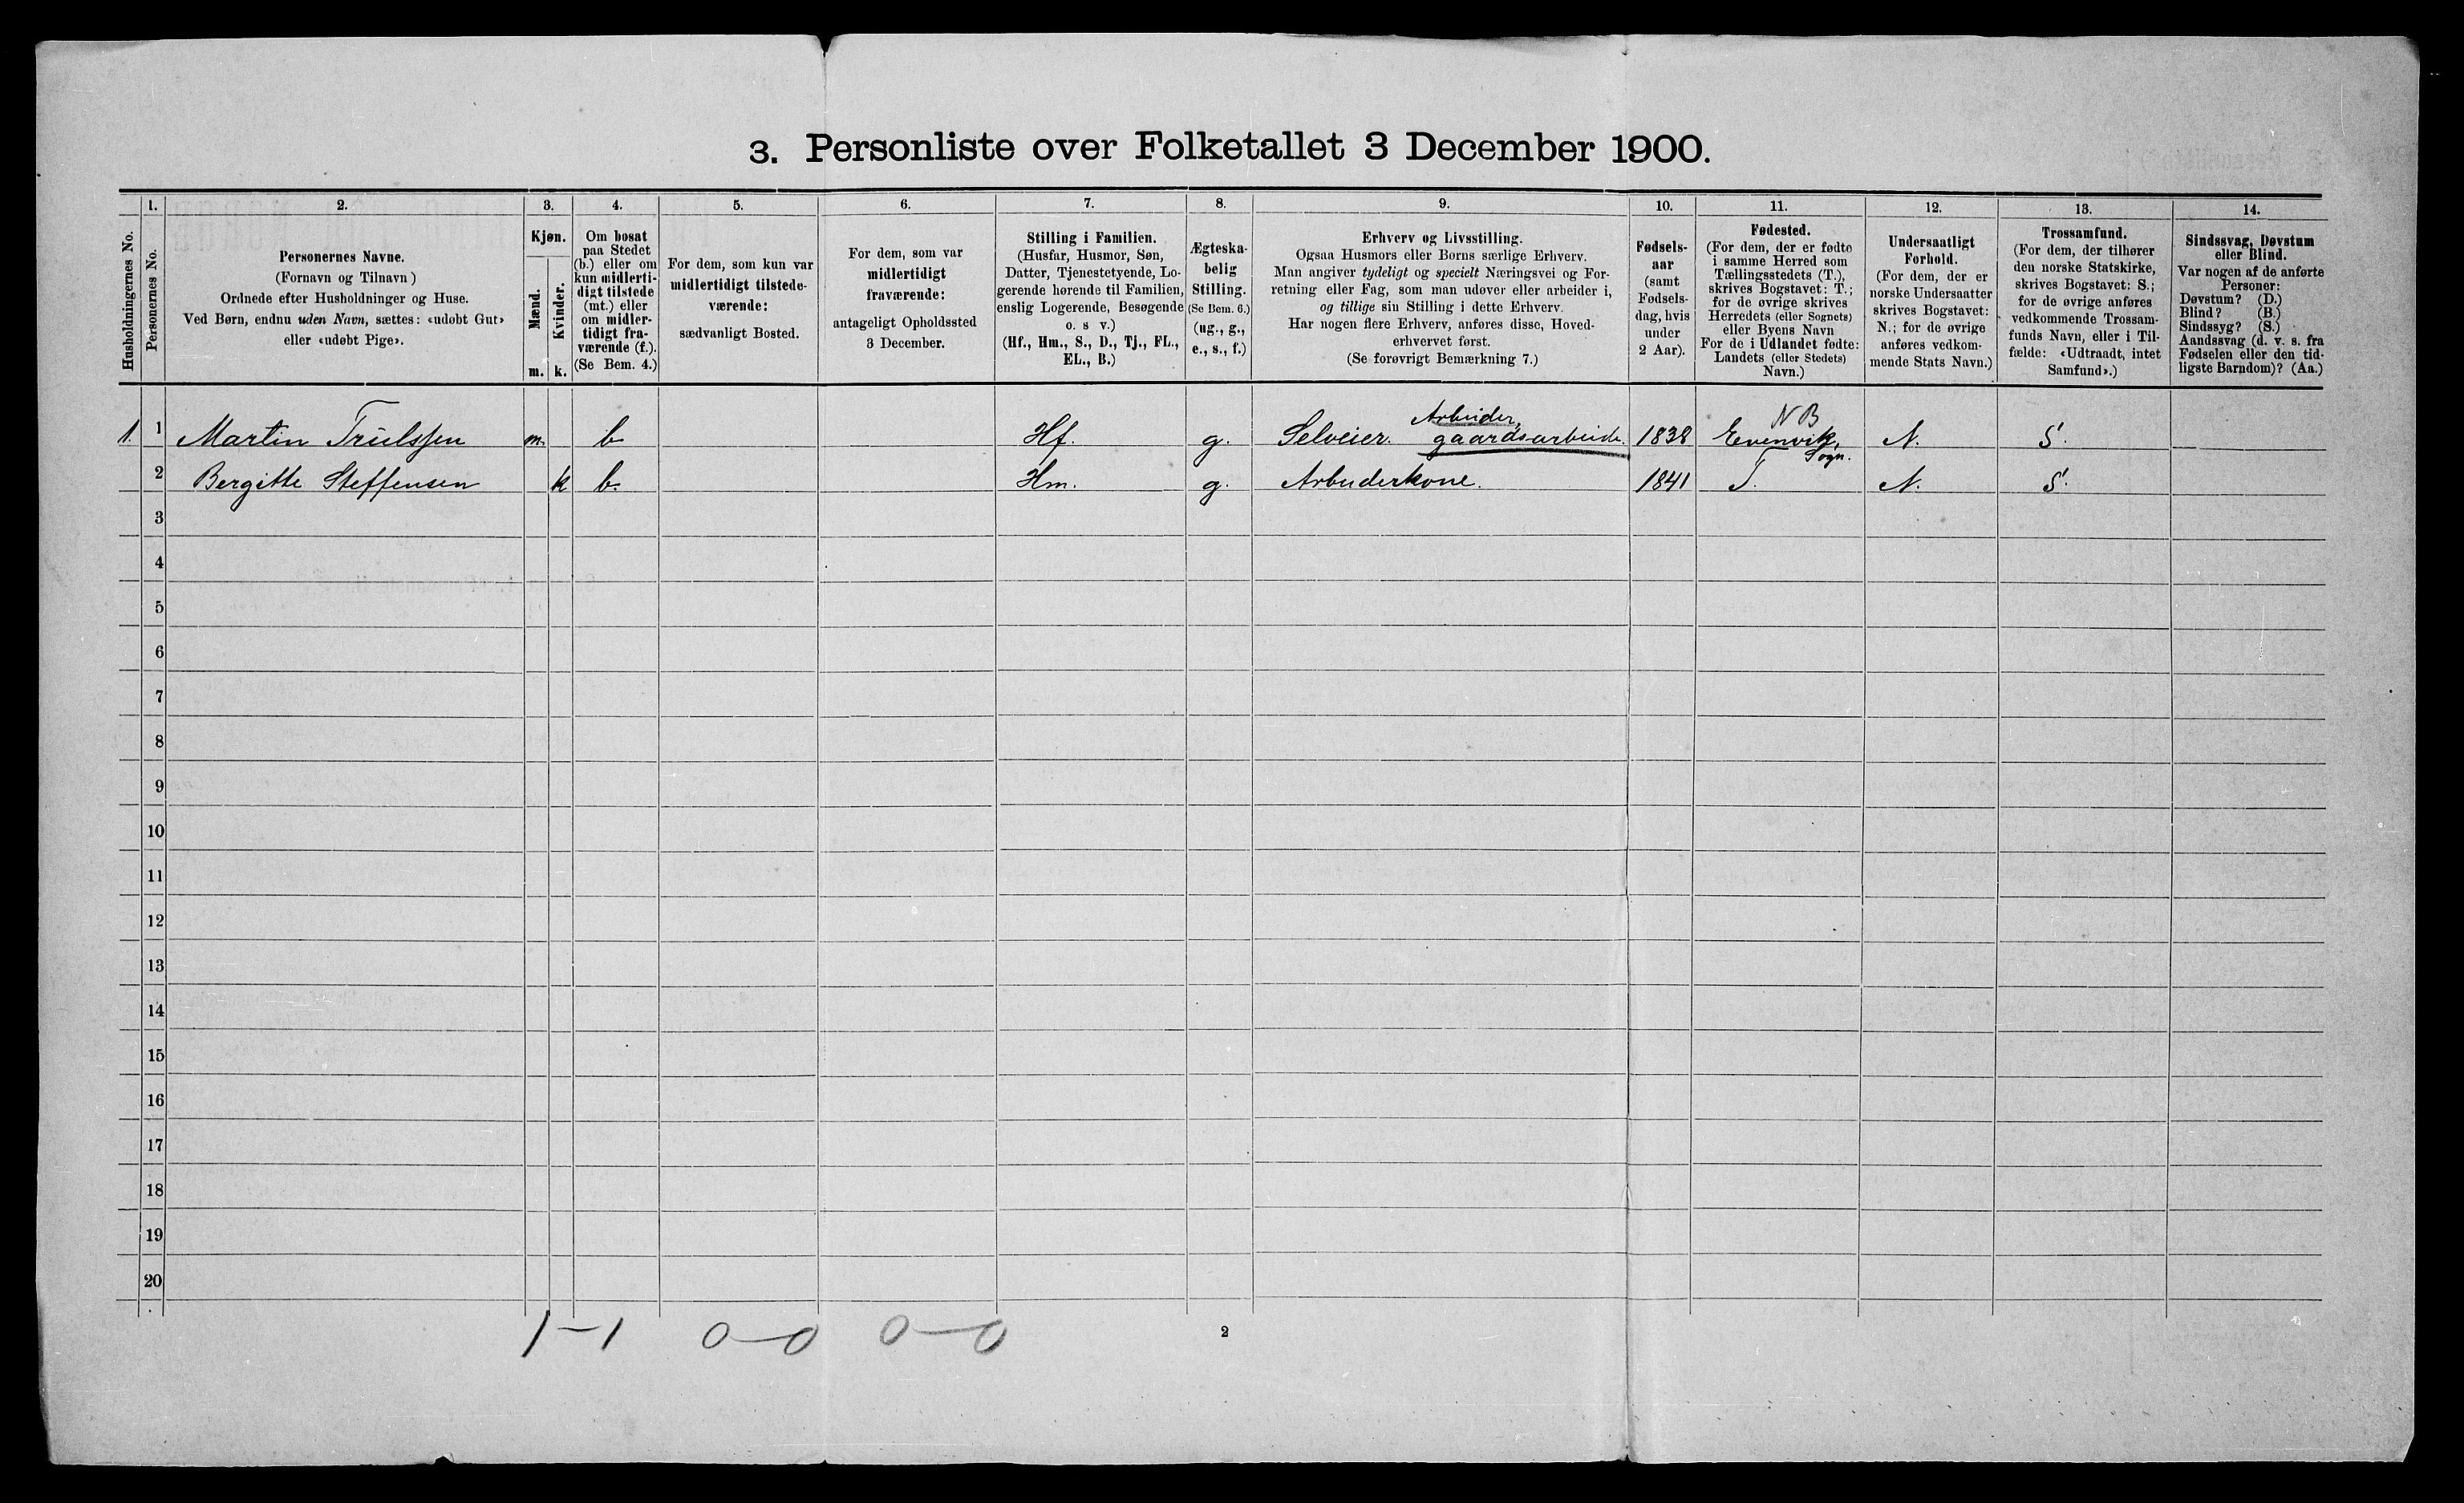 3. Personliste over Folketallet 3 December 1900.
Husholdningernes No.
1.
Personernes No.
2.
Personernes Navne.
(Fornavn og Tilnavn)
Ordnede efter Husholdninger og Huse.
Ved Børn, endnu uden Navn, sættes: «udøbt Gut»
eller «udøbt Pige».
3.
Kjøn.
Mænd.
m.
Kvinder.
k.
4.
Om bosat
paa Stedet
(b.) eller om
kun midlerti-
digt tilstede
(mt.) eller
om midler-
tidigt fra-
værende (f.).
(Se Bem. 4.)
5.
For dem, som kun var
midlertidigt tilstede-
værende:
sædvanligt Bosted.
6.
For dem, som var
midlertidigt
fraværende:
antageligt Opholdssted
3 December.
7.
Stilling i Familien.
(Husfar, Husmor, Søn,
Datter, Tjenestetyende, Lo-
gerende hørende til Familien,
enslig Logerende, Besøgende
o. s v.)
(Hf., Hm., S., D., Tj., FL.,
EL., B.)
8.
Ægteska-
belig
Stilling.
(Se Bem. 6.)
(ug., g.,
e., s., f.)
9.
Erhverv og Livsstilling.
Ogsaa Husmors eller Børns særlige Erhverv.
Man angiver tydeligt og specielt Næringsvei og For-
retning eller Fag, som man udøver eller arbeider i,
og tillige sin Stilling i dette Erhverv.
Har nogen flere Erhverv, anføres disse, Hoved-
erhvervet først.
(Se forøvrigt Bemærkning 7.)
10.
Fødsels-
aar
(samt
Fødsels-
dag, hvis
under
2 Aar).
11.
Fødested.
(For dem, der er fødte
i samme Herred som
Tællingsstedets (T.),
skrives Bogstavet: T.;
for de øvrige skrives
Herredets (eller Sognets)
eller Byens Navn
For de i Udlandet fødte:
Landets (eller Stedets)
Navn.)
12.
Undersaatligt
Forhold.
(For dem, der er
norske Undersaatter
skrives Bogstavet:
N.; for de øvrige
anføres vedkom-
mende Stats Navn.)
13.
Trossamfund.
(For dem, der tilhører
den norske Statskirke,
skrives Bogstavet: S.;
for de øvrige anføres
vedkommende Trossam-
funds Navn, eller i Til-
fælde: «Udtraadt, intet
Samfund».)
14.
Sindssvag, Døvstum
eller Blind.
Var nogen af de anførte
Personer:
Døvstum? (D.)
Blind? (B.)
Sindssyg? (S.)
Aandssvag (d. v. s. fra
Fødselen eller den tid-
ligste Barndom)? (Aa.)
Arbeider, NB
1. 1 Martin Trulssen m. b Hf. g. Selveier. gaardsarbeide. 1838 Evenvik, N. S.
Sogn.
2 Bergitte Steffensen k b. Hm. g. Arbeiderkone. 1841 T. N. S.
3
4
5
6
7
8
9
10
11
12
13
14
15
16
17
18
19
20
1–1 0–0 0–0
2